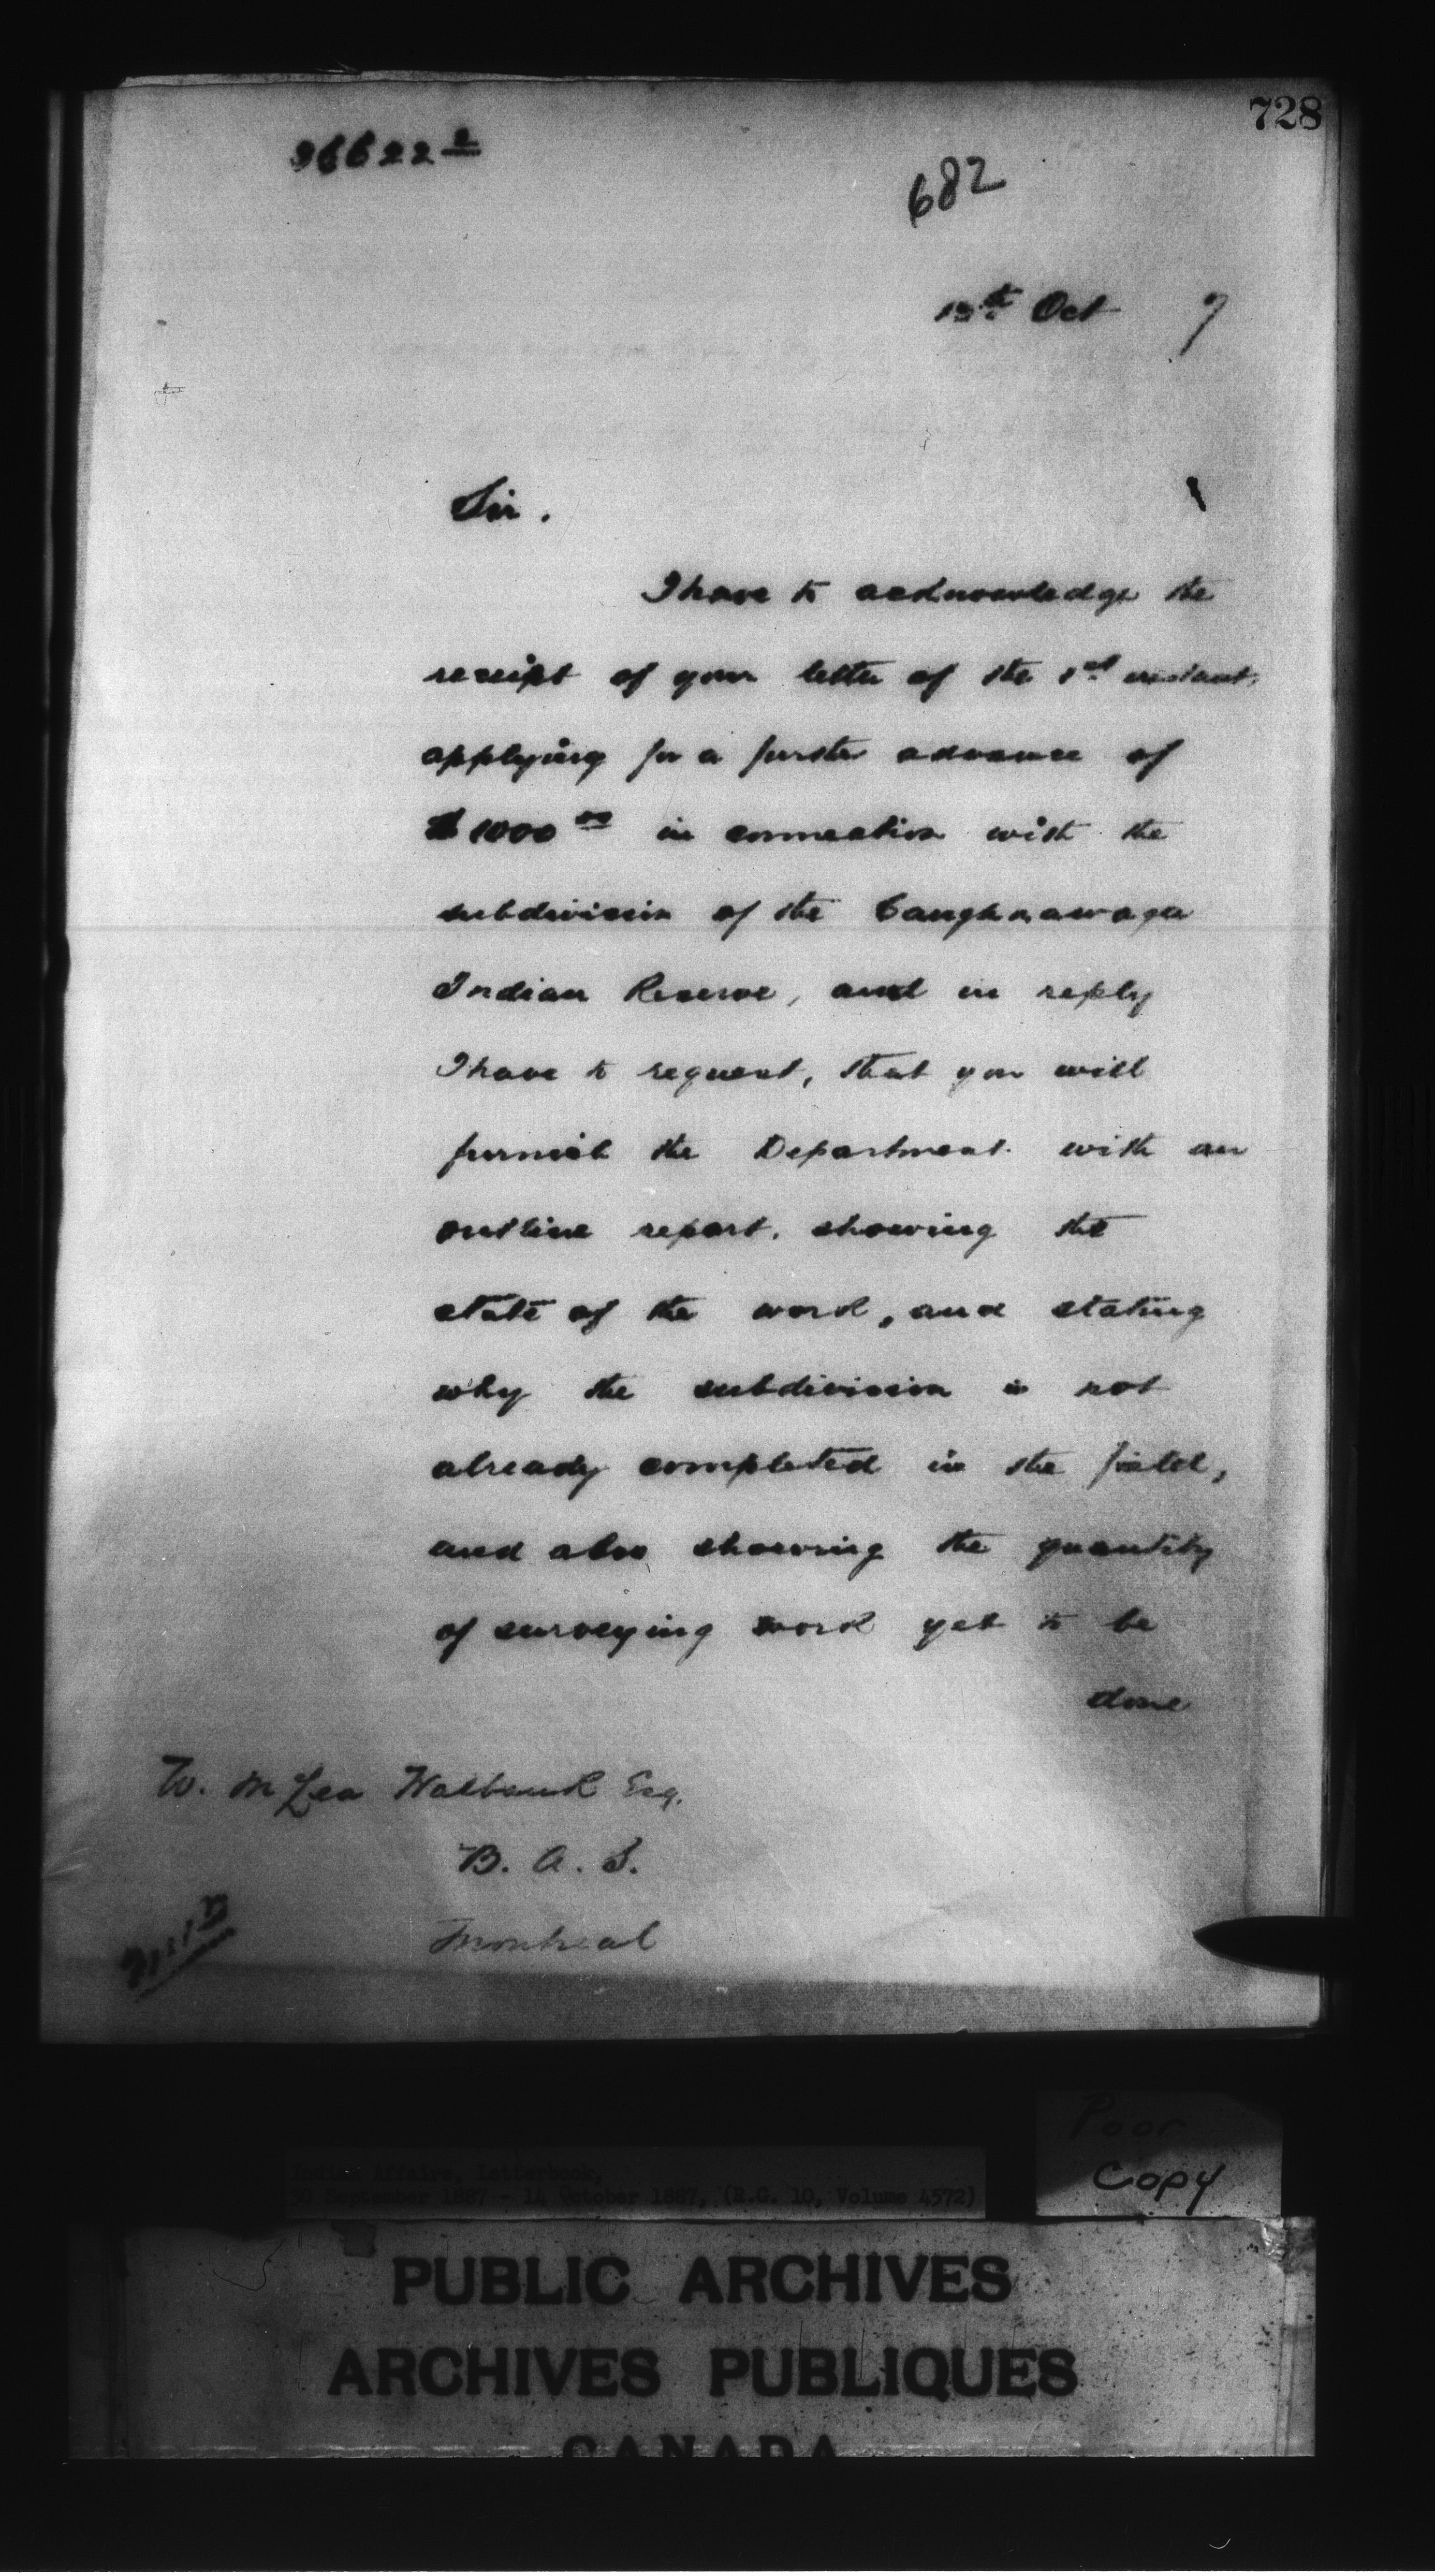 728
36622 2
682
13th Oct 7
Sir.
I have to acknowledge the
receipt of your letter of the 1st instant,
applying for a further advance of
$1000 00 in connection with the
subdivision of the Caughnawaga
Indian Reserve, and in reply
I have to request, that you will
furnish the Department with an
outline report, showing the
state of the work, and stating
why the subdivision is not
already completed in the field,
and also showing the quantity
of surveying work yet to be
done
W. McLea Walbank Esq.
B. A. S.
Montreal
Poor
Copy
Indian Affairs, Letterbook,
30 September 1887 - 14 October 1887, (R.G. 10, Volume 4572)
PUBLIC ARCHIVES
ARCHIVES PUBLIQUES
CANADA